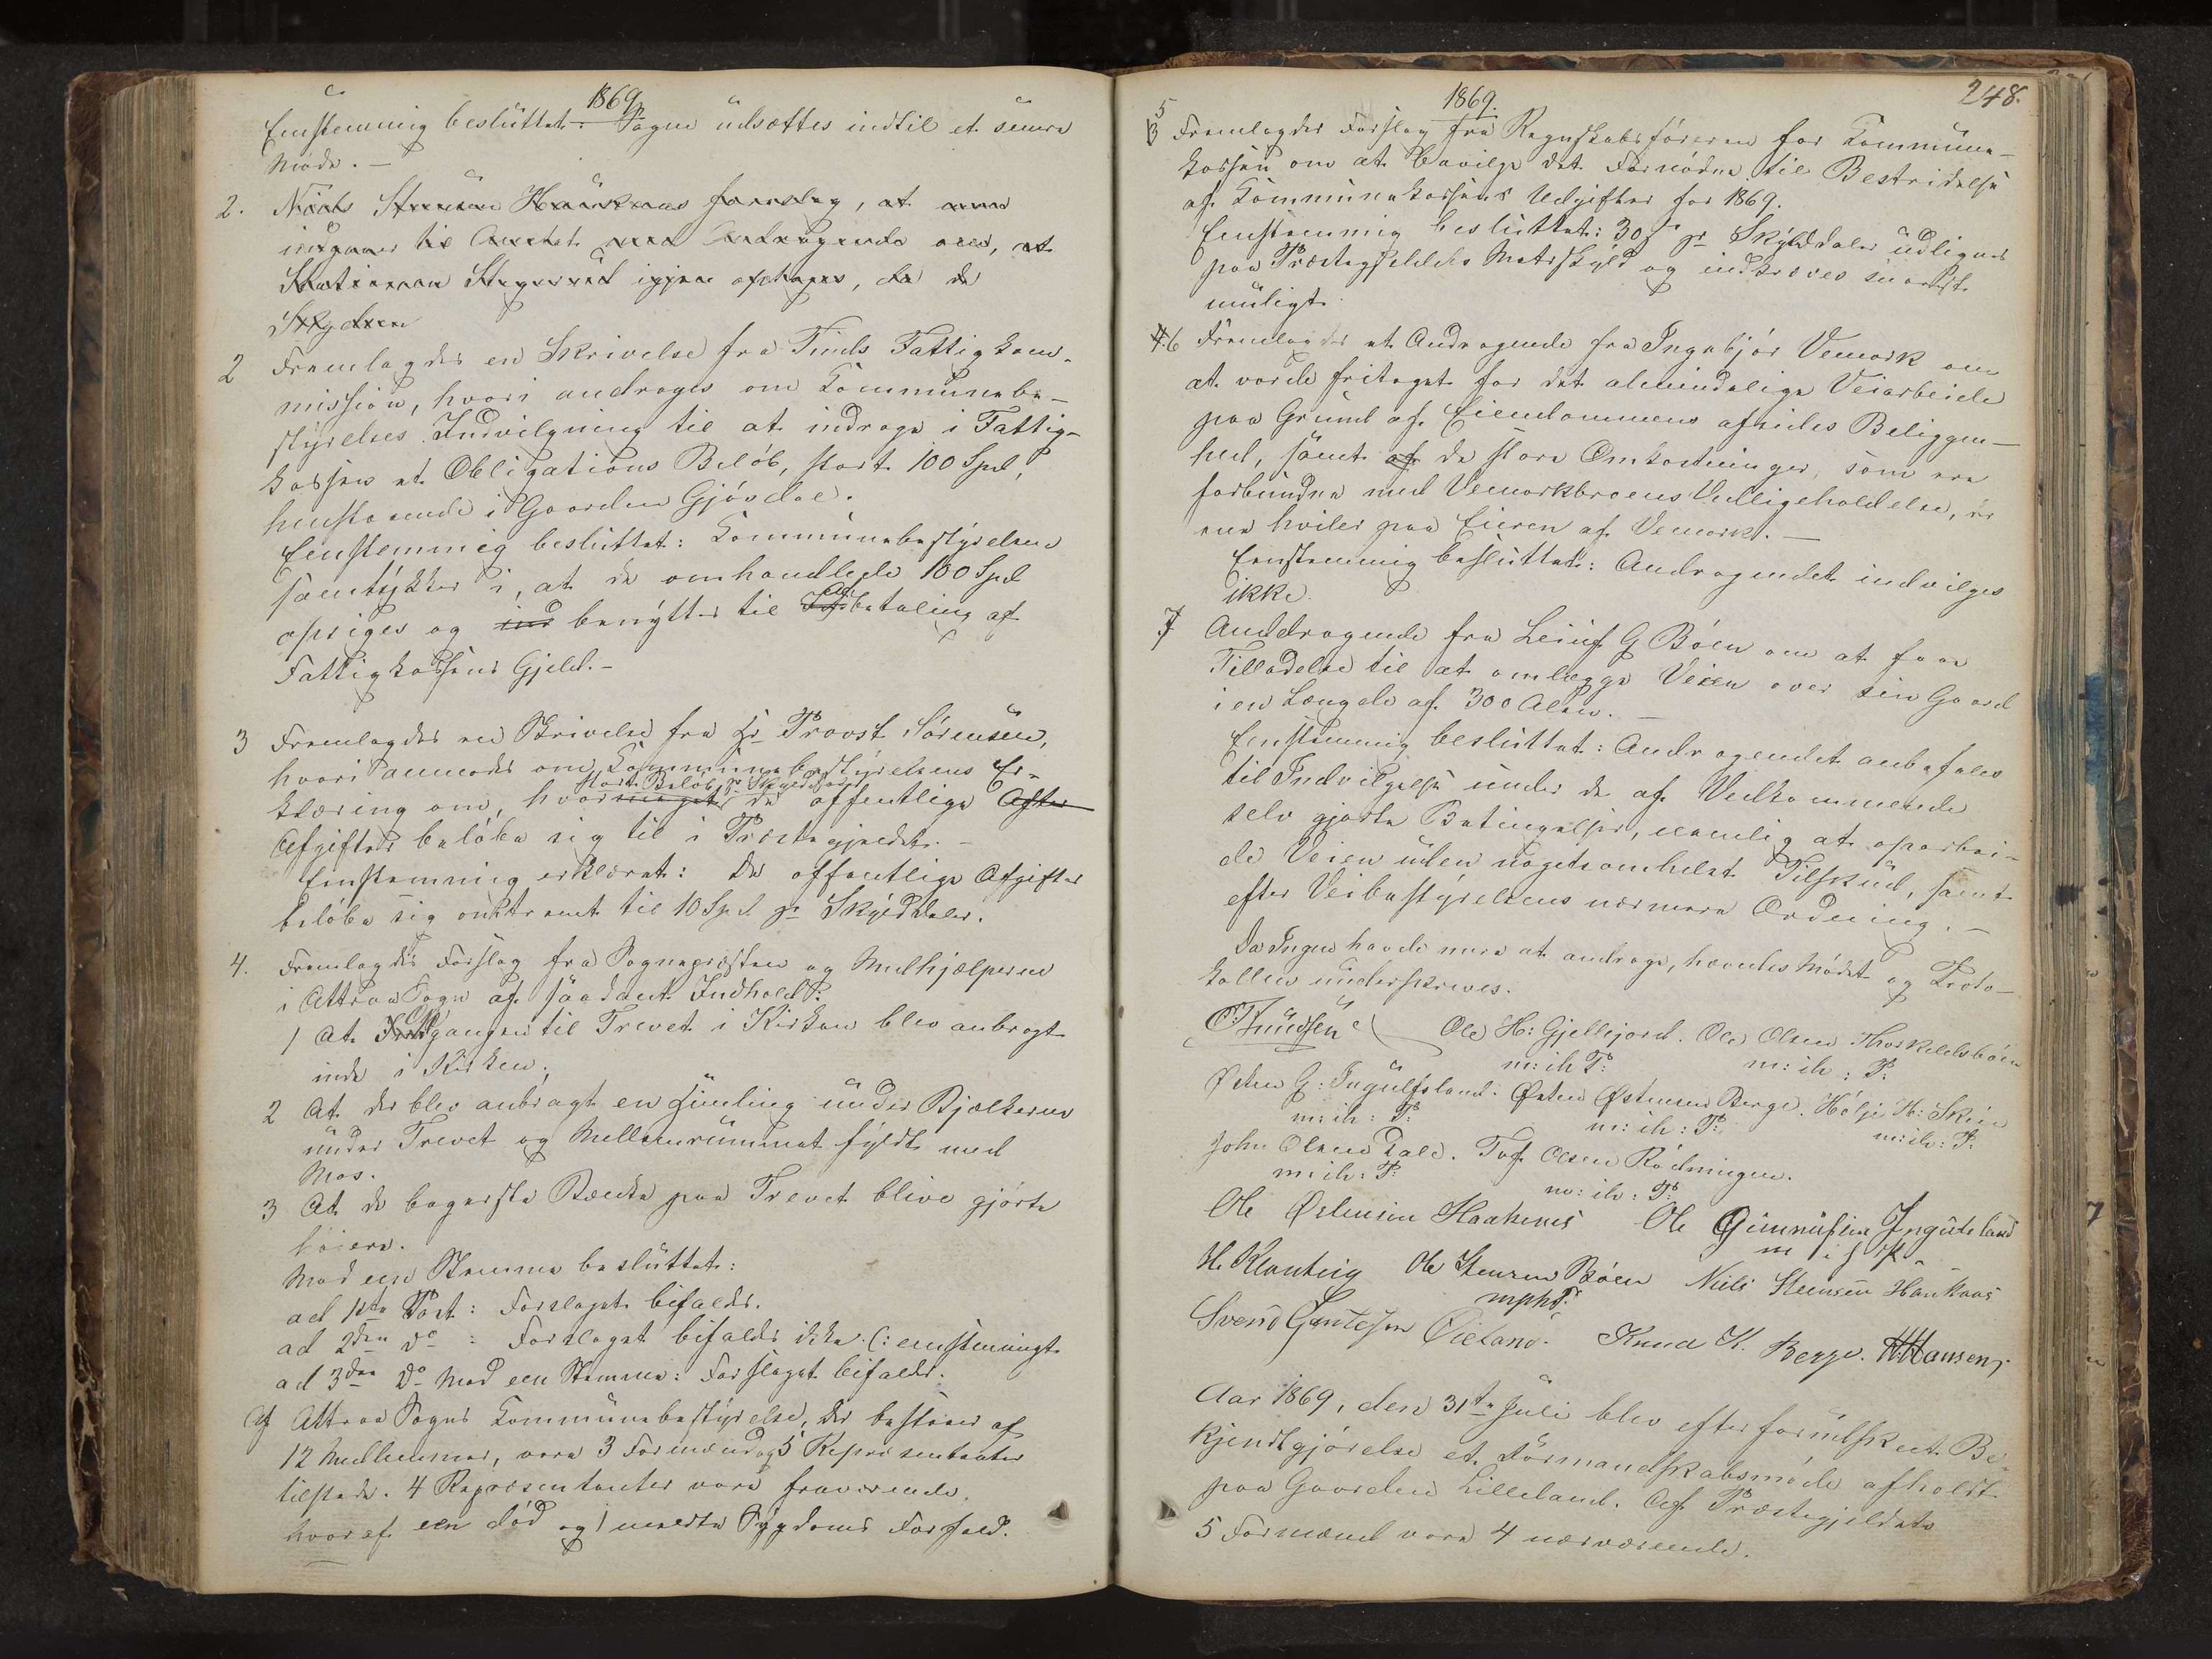 1869.
Eenstemmig besluttet: Sagen udsættes indtil et senere
Møde. —
2. Niels Steensen Haukaas foreslog, at man
indgaaer til Amtet med Andragende om, at
Stationen igjen afskages, da de
Skydsen
2 Fremlagdes en Skrivelse fra Tinds Fattigkom-
mission, hvori androges om Kommunebe-
styrelses Indvilgning til at indrage i Fattig-
kassen et Obligations Beløb, stort 100 Spd,
henstaaende i Gaarden Gjøsdal.
Eenstemmig besluttet: Kommunebestyrelsen
samtykker i, at de omhandlede 100 Spd
opsiges og ind benyttes til Afbetaling af
Fattigkassens Gjeld. —
3 Fremlagdes en Skrivelse fra Hr Provst Sørensen,
hvori anmodes om Kommunebestyrelsens Er-
stort Beløb pr Skylddaler
klæring om, hvor meget de offentlige After
Afgifter beløbe sig til i Præstegjeldet. —
Eenstemmig erklæret: De offentlige Afgifter
beløbe sig omtrent til 10 Spd pr Skylddaler.
4. Fremlagdes Forslag fra Sognepræsten og Medhjælperne
i Attraa Sogn af saadant Indhold:
1 At Opgangen til Trevet i Kirken blev anbragt
inde i Kirken,
2 At der blev anbragt en Himling under Bjælkerne
under Trevet og Mellemrummet fyldt med
Mos.
3 At de bagerste Bænke paa Trevet blive gjorte
høiere.
Mod een Stemme besluttet:
ad 1ste Post: Forslaget bifaldes.
ad 2den do: Forslaget bifaldes ikke (: eenstemmigt
ad 3die do Mod een Stemme: Forslaget bifaldes.
Af Attraa Sogns Kommunebestyrelse, der bestaaer af
12 Medlemmer, vare 3 Formænd og 5 Repræsentanter
tilstede. 4 Repræsentanter vare fraværende,
hvoraf een død og 1 meldte Sygdoms Forfald.
1869.
248.
5 Fremlagdes Forslag fra Regnskabsføreren for Kommune-
kassen om at bevilge det Fornødne til Bestridelse
af Kommunekassens Udgifter for 1869.
Eenstemmig besluttet: 30 s pr Skylddaler udlignes
paa Præstegjeldets Matrskyld og indkræves snarest
muligt.
6 Fremlagdes et Andragende fra Ingebjør Vemork om
at vorde fritaget for det almindelige Veiarbeide
paa Grund af Eiendommens afsides Beliggen-
hed, samt af de store Omkostninger, som ere
forbundne med Vemorkbroens Vedligeholdelse, der
ene hviler paa Eieren af Vemork. —
Eenstemmig besluttet: Andragendet indvilges
ikke.
7 Anddragende fra Leiuf G Bøen om at faae
Tilladelse til at omlægge Veien over sin Gaard
i en Længde af 300 Alen. —
Eenstemmig besluttet: Andragendet anbefales
til Indvilgelse under de af Vedkommende
selv gjorte Betingelser, nemlig at oparbei-
de Veien uden nogetsomhelst Tilskud, samt
efter Veibestyrelsens nærmere Ordning. —
Da Ingen havde mere at andrage, hævedes Mødet og Proto-
kollen underskreves.
C Knudsen Ole H: Gjellejord. Ole Olsen Thorkeldsbøen
m: ih P: m: ih: P:
Østen G: Ingulfsland. Østen Østensen Berge. Hølje H: Skeie
m: ih: P: m: ih: P: m: ih: P:
John Olsen Dale. Tof Olsen Rødningen.
m: ih: P: m: ih: P:
Ole Østensen Haakenes Ole Gunnulsen Ingulsland
m i f P
H. Klonteig Ole Steensen Bøen Niels Steensen Haukaas
mphP.
Svend Gunleksen Øieland. Knud K. Berge. HHansen,
Aar 1869, den 31te Juli blev efter forudskeet Be-
kjendtgjørelse et Formandskabsmøde afholdt
paa Gaarden Lilleland. Af Præstegjeldets
5 Formænd vare 4 nærværende.